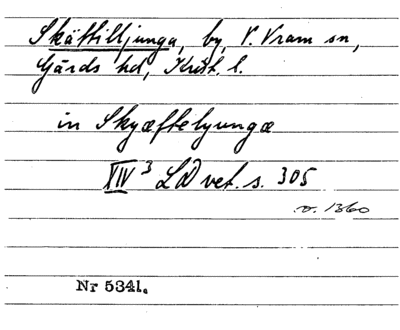 Skättilljunga, by, V. Vram sn,
Gärds hd, Krist. l.
in Skyæftelyungæ
XIV 3 LD vet. s. 305
o. 1360
Nr 5341.